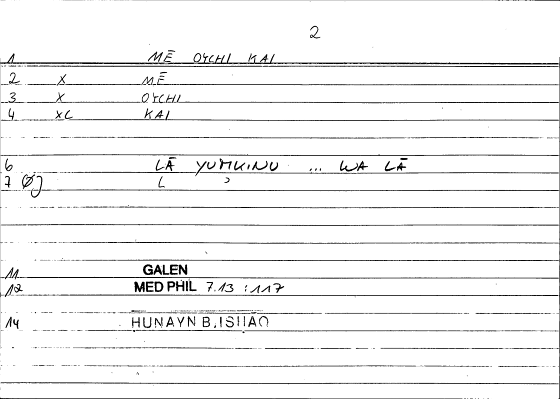 2
1 MĒ OYCHI KAI
2 X MĒ
3 X OYCHI
4 XC KAI
6 LĀ YUMKINU ... WA LĀ
7 ØJ L ʾ
11 GALEN
12 MED PHIL 7.13 :117
14 HUNAYN B.ISHAQ